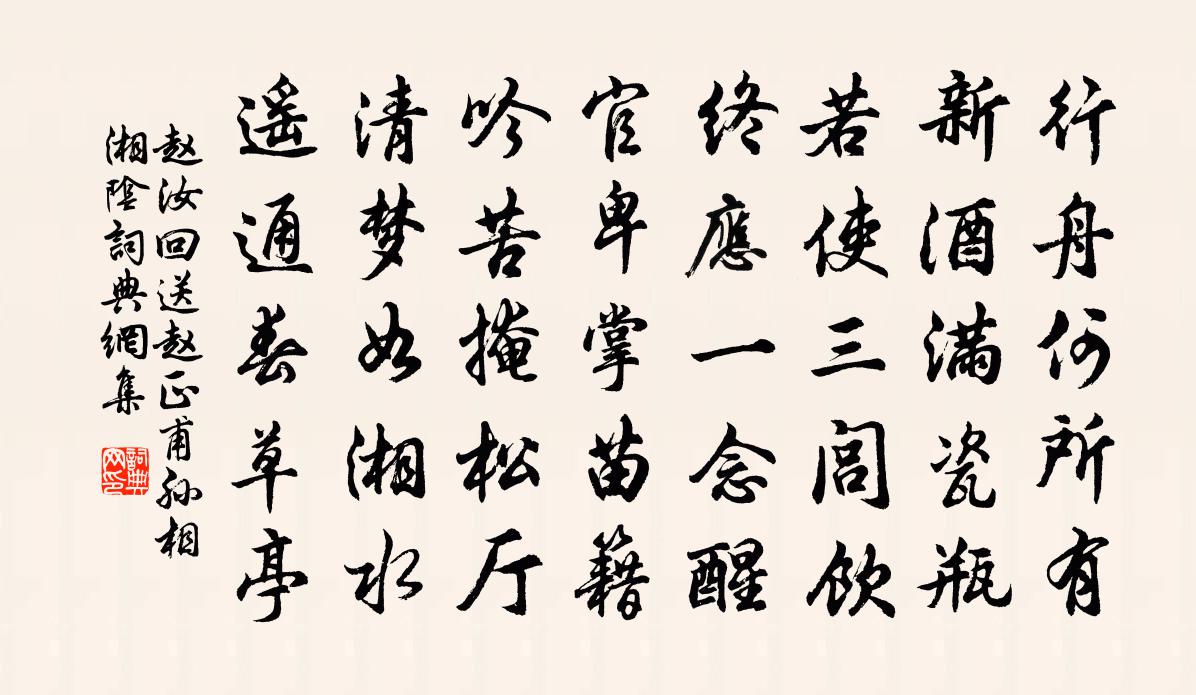 行舟何所有
新酒满瓷瓶
若使三闾飲
终應一念醒
官卑掌苗籍
吟苦掩松厅
清梦如湘水
遥通春草亭
赵汝回送赵正甫孙相
湘陰詞典網集
詞典网印